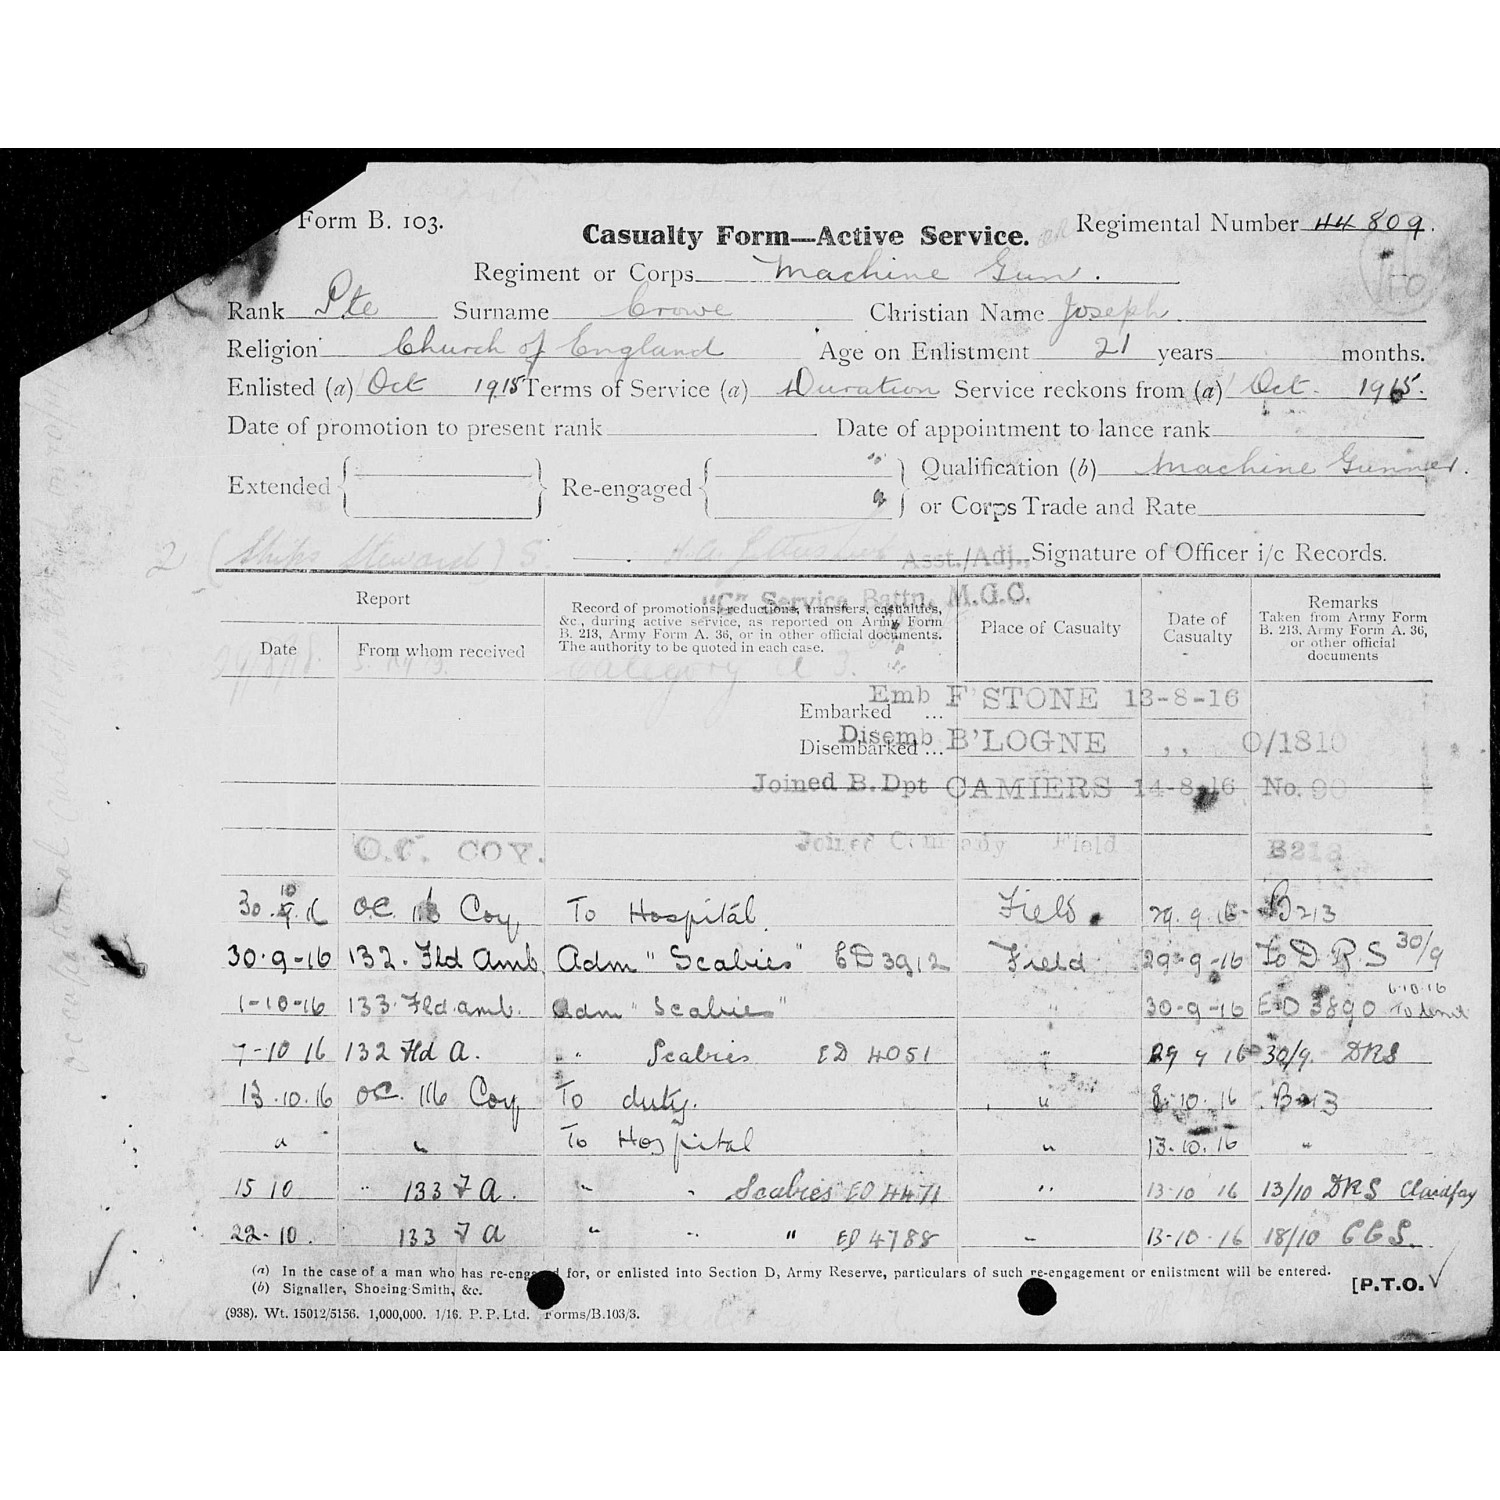 Form B. 103.
Casualty Form—Active Service.
Regimental Number 44809.
Regiment or Corps Machine Gun.
Rank Pte Surname Crowe Christian Name Joseph
Religion Church of England Age on Enlistment 21 years months.
Enlisted (a) Oct 1915 Terms of Service (a) Duration Service reckons from (a) Oct. 1915.
Date of promotion to present rank Date of appointment to lance rank
Extended Re-engaged Qualification (b) Machine Gunner.
or Corps Trade and Rate
(Ships Steward) S. Asst./Adj., Signature of Officer i/c Records.
"C" Service Battn. M.G.C.
Report
Date
From whom received
Record of promotions, reductions, transfers, casualties,
&c., during active service, as reported on Army Form
B. 213, Army Form A. 36, or in other official documents.
The authority to be quoted in each case.
Place of Casualty
Date of
Casualty
Remarks
Taken from Army Form
B. 213, Army Form A. 36,
or other official
documents
Category A
Emb F'STONE 13-8-16
Embarked ...
Disemb B'LOGNE ,, O/1810
Disembarked ...
Joined B.Dpt CAMIERS 14-8-16 No. 90
O.C. COY. Joined Company Field B213
30.9.16 OC 116 Coy To Hospital Field 29.9.16 B213
30-9-16 132. Fld Amb Adm "Scabies" ED 3912 Field 29-9-16 To D.R.S 30/9
1-10-16 133. Fld. amb. Adm "Scabies" " 30-9-16 ED 3890 6.10.16
7-10 16 132 Fld A. " Scabies ED 4051 " 29 9 16 30/9. DRS
13.10.16 OC. 116 Coy To duty. " 8.10.16 B213
" " To Hospital " 13.10.16 "
15 10 " 133 F A. " " Scabies ED 4471 " 13-10 16 13/10 DRS Clairfay
22-10. 133 F A " " " ED 4788 13-10-16 18/10 CCS.
(a) In the case of a man who has re-engaged for, or enlisted into Section D, Army Reserve, particulars of such re-engagement or enlistment will be entered.
(b) Signaller, Shoeing-Smith, &c.
[P.T.O.
(938). Wt. 15012/5156. 1,000,000. 1/16. P. P. Ltd. Forms/B.103/3.